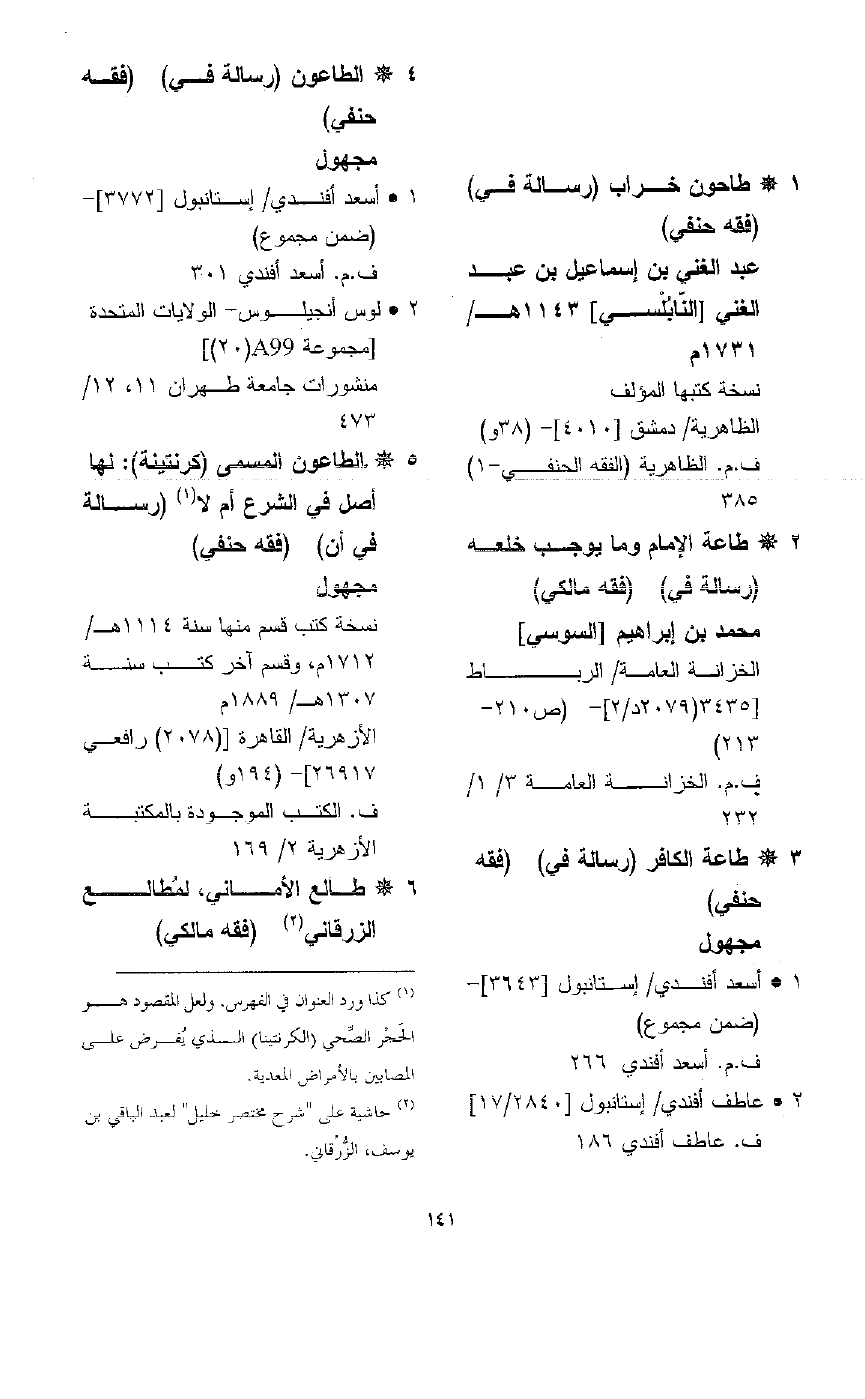 ١ ❋ طاحون خراب (رسالة في)
(فقه حنفي)
عبد الغني بن إسماعيل بن عبد
الغني [النَّابُلْسي] ١١٤٣هـ/
١٧٣١م
نسخة كتبها المؤلف
الظاهرية/ دمشق [٤٠١٠]- (٣٨و)
ف.م. الظاهرية (الفقه الحنفي-١)
٣٨٥
٢ ❋ طاعة الإمام وما يوجب خلعه
(رسالة في) (فقه مالكي)
محمد بن إبراهيم [السوسي]
الخزانة العامة/ الرباط
[٣٤٣٥(٢٠٧٩د/٢]- (ص٢١٠-
٢١٣)
ف.م. الخزانة العامة ٣/ ١/
٢٣٢
٣ ❋ طاعة الكافر (رسالة في) (فقه
حنفي)
مجهول
١ • أسعد أفندي/ إستانبول [٣٦٤٣]-
(ضمن مجموع)
ف.م. أسعد أفندي ٢٦٦
٢ • عاطف أفندي/ إستانبول [١٧/٢٨٤٠]
ف. عاطف أفندي ١٨٦
٤ ❋ الطاعون (رسالة في) (فقه
حنفي)
مجهول
١ • أسعد أفندي/ إستانبول [٣٧٧٢]-
(ضمن مجموع)
ف.م. أسعد أفندي ٣٠١
٢ • لوس أنجيلوس- الولايات المتحدة
[مجموعة A99(٢٠)]
منشورات جامعة طهران ١١، ١٢/
٤٧٣
٥ ❋ الطاعون المسمى (كرنتينة): لها
أصل في الشرع أم لا(١) (رسالة
في أن) (فقه حنفي)
مجهول
نسخة كتب قسم منها سنة ١١١٤هـ/
١٧١٢م، وقسم آخر كتب سنة
١٣٠٧هـ/ ١٨٨٩م
الأزهرية/ القاهرة [(٢٠٧٨) رافعي
٢٦٩١٧]- (١٩٤و)
ف. الكتب الموجودة بالمكتبة
الأزهرية ٢/ ١٦٩
٦ ❋ طالع الأماني، لمُطالع
الزرقاني(٢) (فقه مالكي)
(١) كذا ورد العنوان في الفهرس. ولعل المقصود هو
الحَجْر الصِّحي (الكرنتينا) الذي يُفرض على
المصابين بالأمراض المعدية.
(٢) حاشية على "شرح مختصر خليل" لعبد الباقي بن
يوسف، الزُّرْقاني.
١٤١